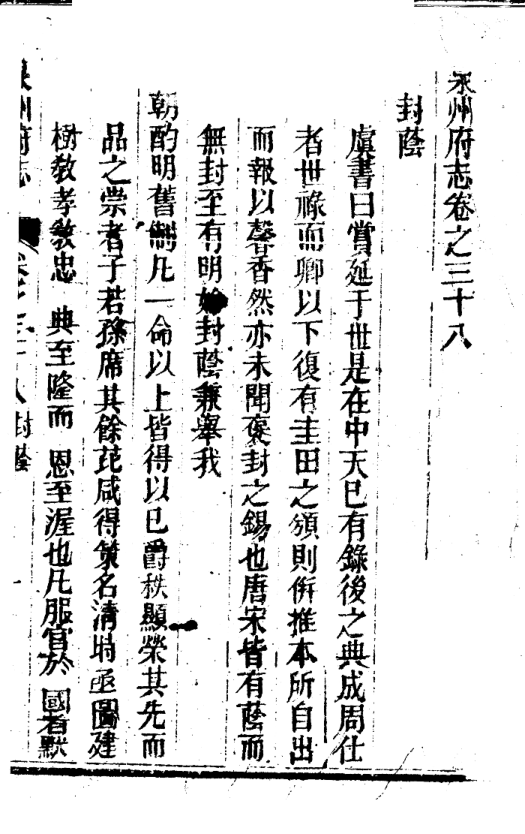 永州府志卷之三十八
封蔭
虞書曰賞延于世是在中天已有錄後之典成周仕
者世祿而卿以下復有圭田之頒則併推本所自出
而報以馨香然亦未聞褒封之錫也唐宋皆有蔭而
無封至有明始封蔭兼舉我
朝酌明舊制凡一命以上皆得以已爵秩顯榮其先而
品之崇者子若孫席其餘芘咸得策名清時亟圖建
樹敎孝敎忠 典至隆而 恩至渥也凡服官於 國者默
州府志 卷之三十八 封蔭